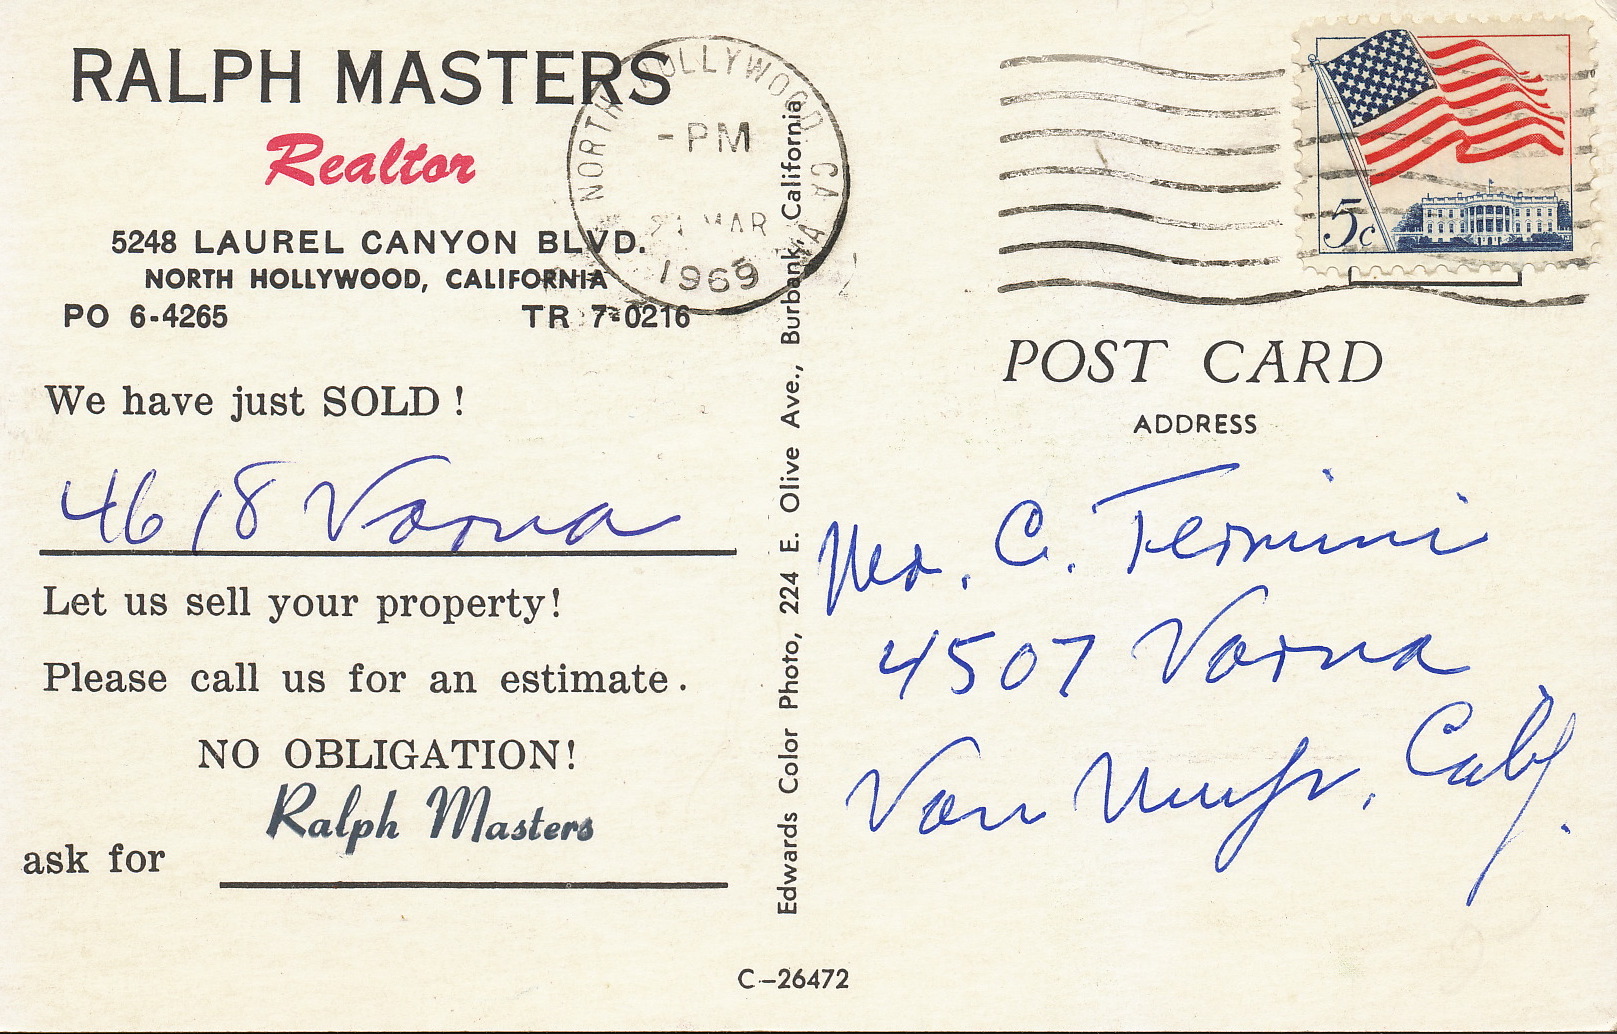 RALPH MASTERS
Realtor
5248 LAUREL CANYON BLVD.
NORTH HOLLYWOOD, CALIFORNIA
PO 6-4265 TR 7-0216
We have just SOLD !
4618 Varna
Let us sell your property!
Please call us for an estimate.
NO OBLIGATION!
Ralph Masters
ask for
NORTH HOLLYWOOD, CA
-PM
MAR
1969
Edwards Color Photo, 224 E. Olive Ave., Burbank, California
C-26472
5c
POST CARD
ADDRESS
C. Termini
4507 Varna
Van Nuys, Calif.